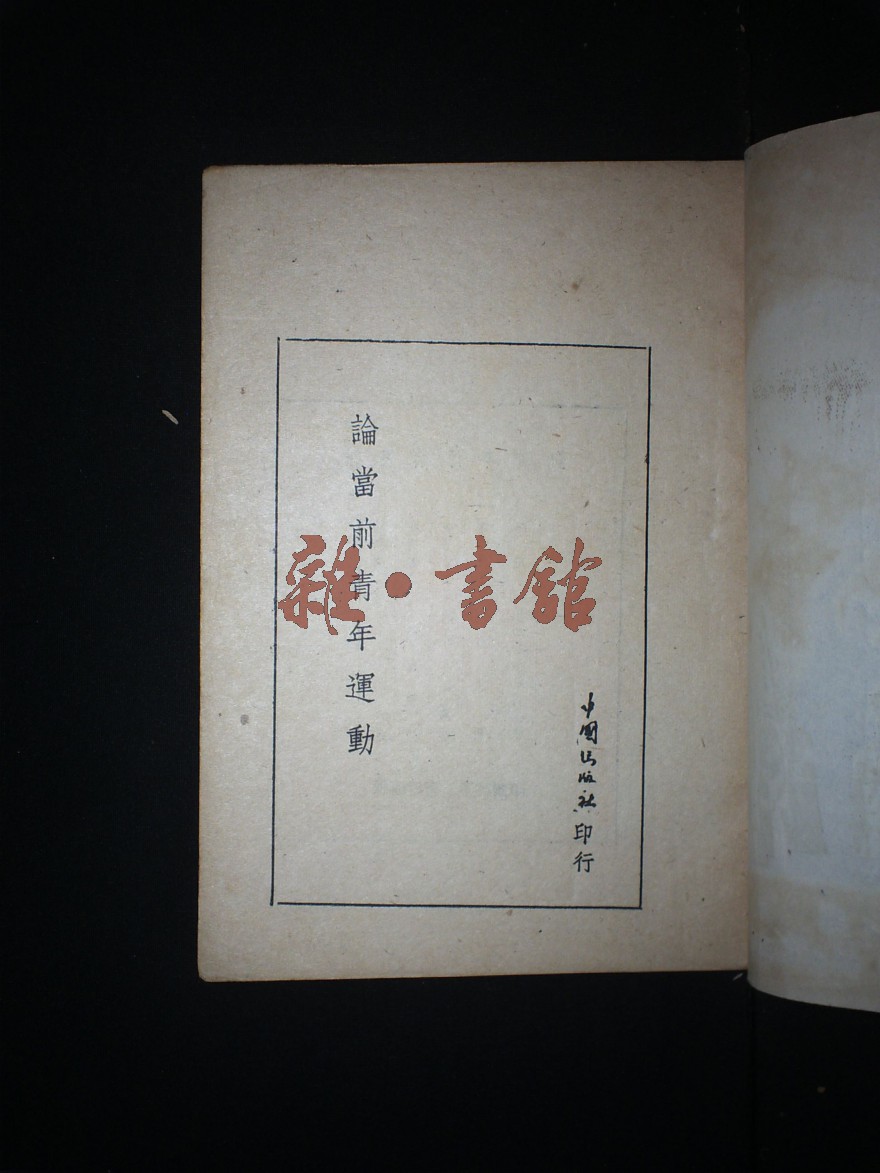 論當前青年運動
雜·書館
中國出版社印行